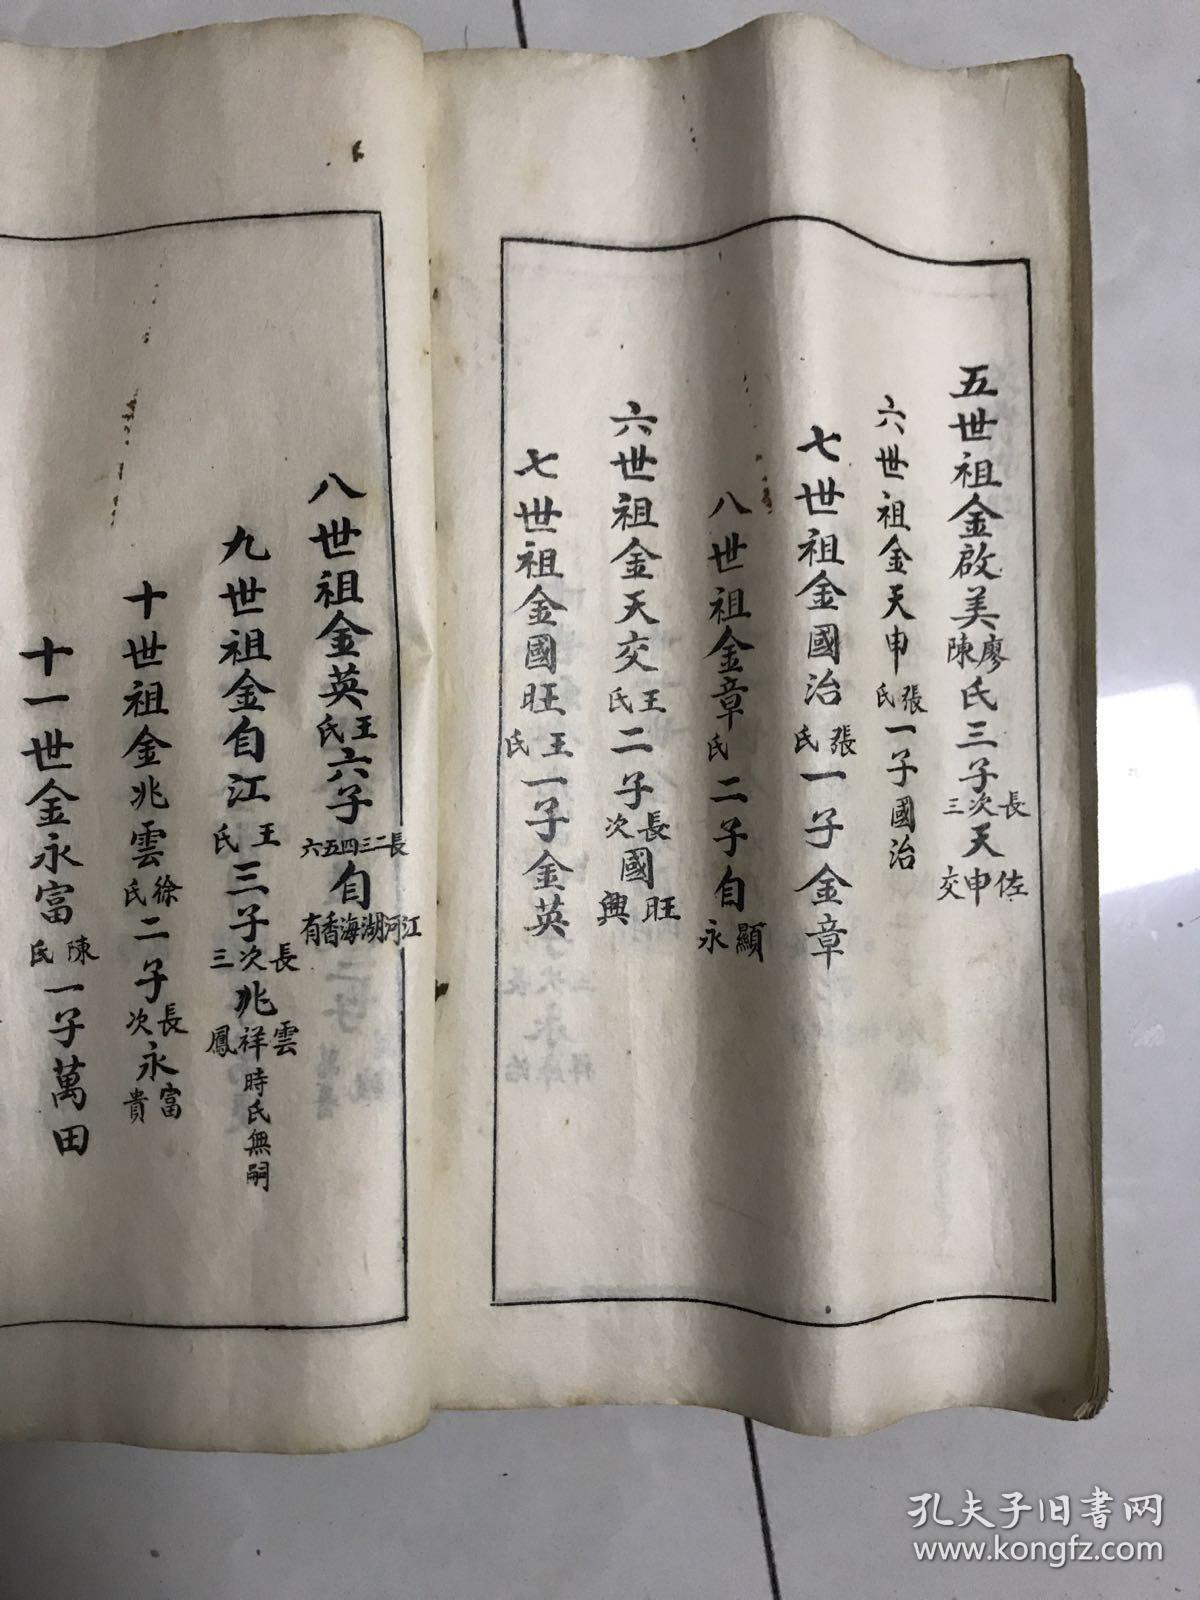 五世祖金啟美廖陳氏三子長次三天佐申交
六世祖金天申張氏一子國治
七世祖金國治張氏一子金章
八世祖金章氏二子自顯永
六世祖金天交王氏二子長次國旺興
七世祖金國旺王氏一子金英
八世祖金英王氏六子長二三四五六自江河湖海香有
九世祖金自江王氏三子長次三兆雲祥鳳時氏無嗣
十世祖金兆雲徐氏二子長次永富貴
十一世金永富陳氏一子萬田
孔夫子旧书网
www.kongfz.com